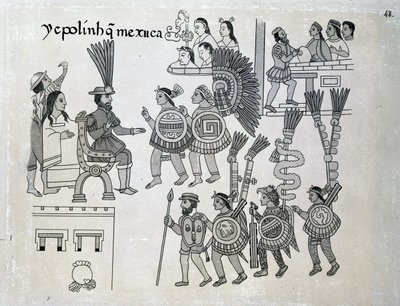 ycpoliuhq̃ mexica
48.